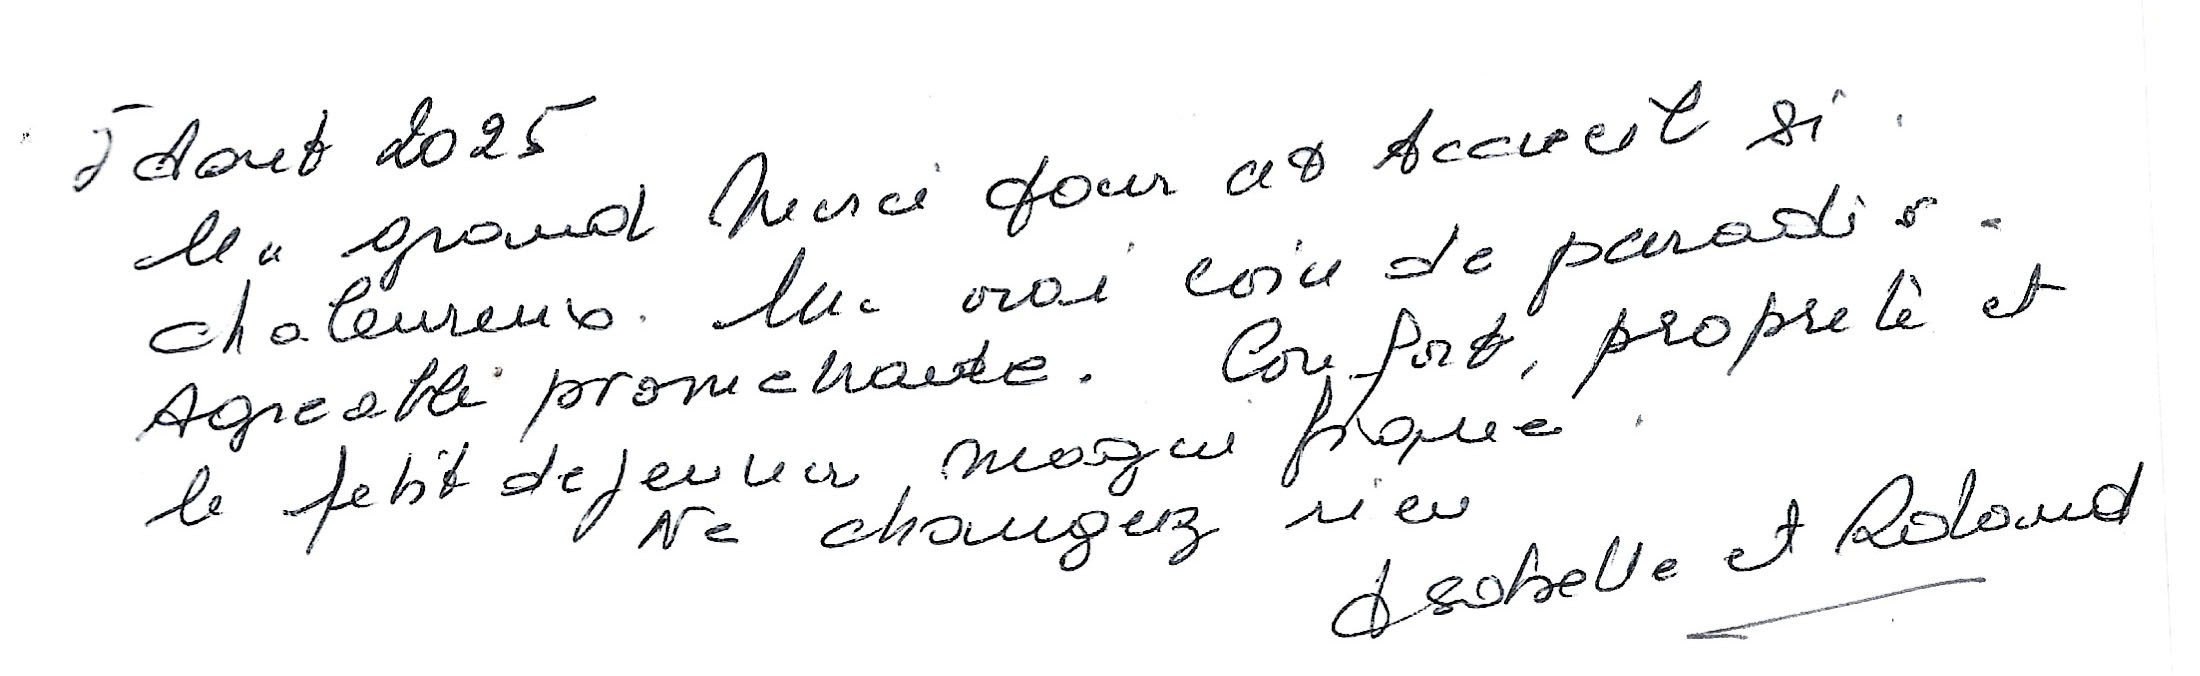 5 Aout 2025
Un grand Merci pour cet Accueil si
chaleureux. Un vrai coin de paradis.
Agreable promenade. Confort, propreté et
le petit dejeuner magnifique.
Ne changez rien
Isabelle et Roland